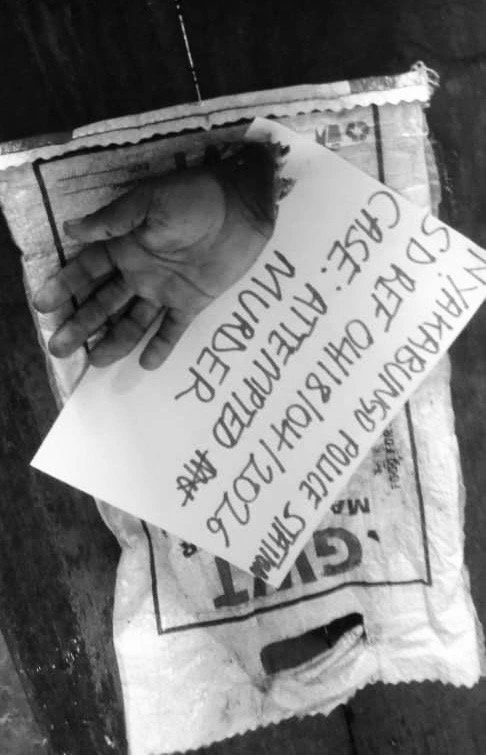 NYAKABUNGO POLICE STATION
SD REF 04/18/04/2026
CASE: ATTEMPTED
MURDER
GNT
MA